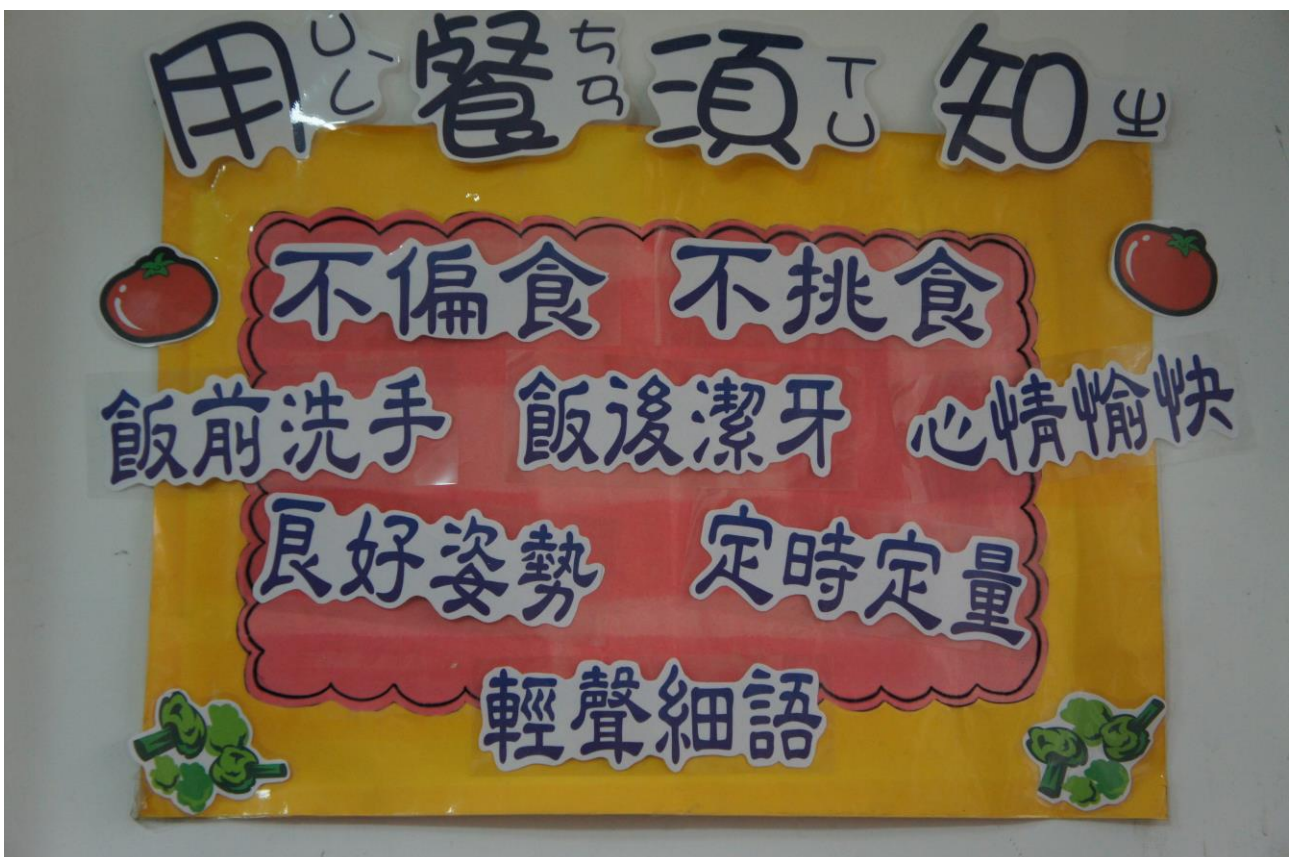 用ㄩㄥˋ餐ㄘㄢ須ㄒㄩ知ㄓ
不偏食 不挑食
飯前洗手 飯後潔牙 心情愉快
良好姿勢 定時定量
輕聲細語